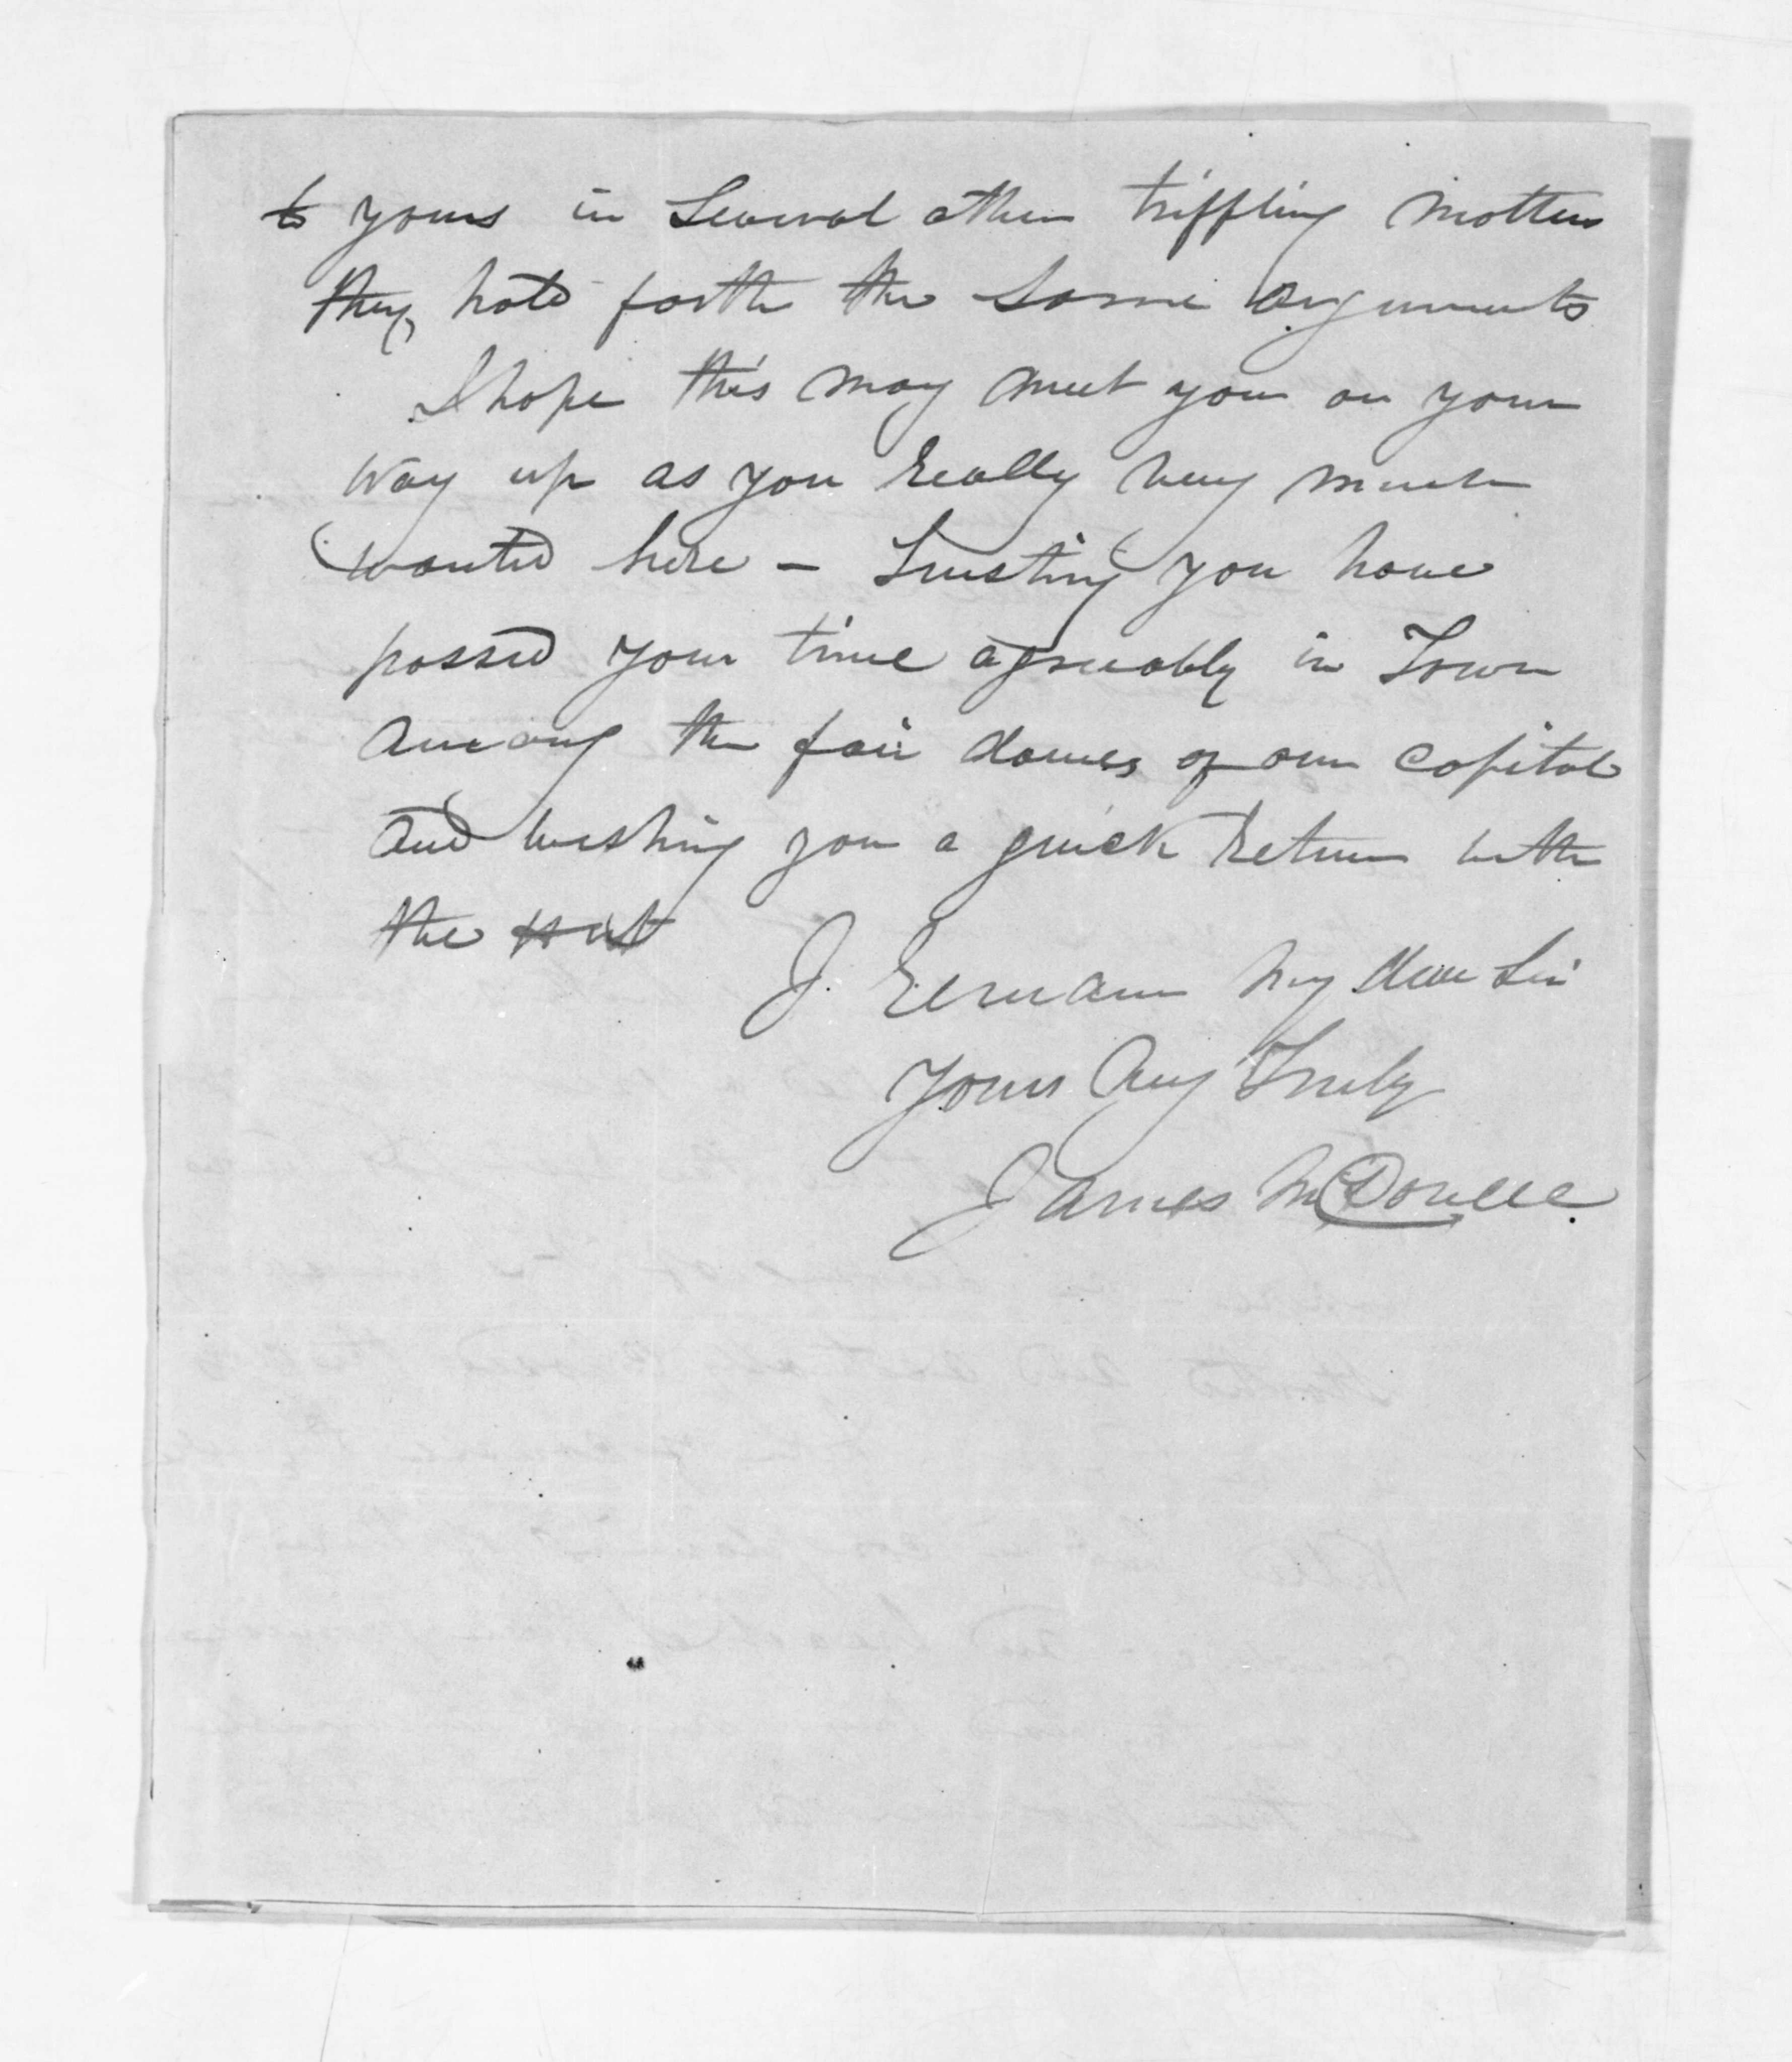 to yours in Several other triffling Matters
they hold forth the Same Arguments
I hope this may meet you on your
way up as you really very much
wanted here - Trusting you have
passed your time agreeably in Town
Among the fair dames of our Capital
And wishing you a quick return with
the
I Remain My dear Sir
Yours Very Truly
James McDonell